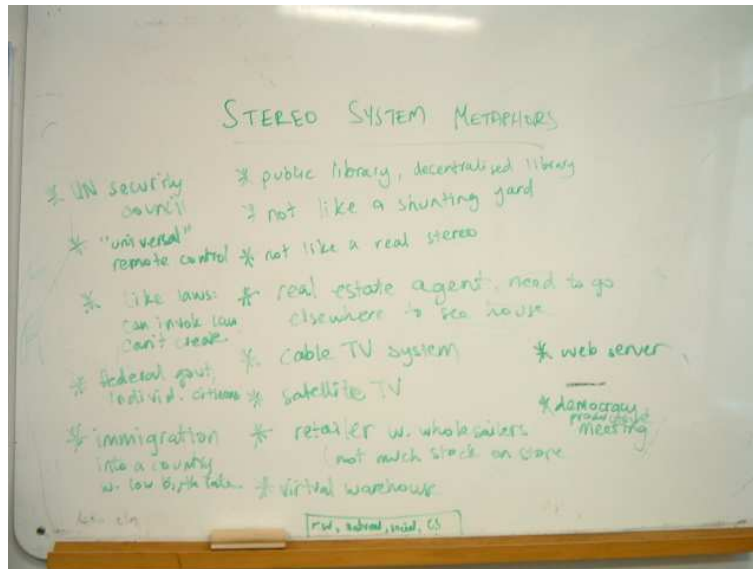 STEREO SYSTEM METAPHORS
* UN security
council
* "universal"
remote control
* like laws:
can invok law
can't create
* federal govt,
individ. citizens
* immigration
into a country
w. low birth rate
* public library, decentralised library
* not like a shunting yard
* not like a real stereo
* real estate agent, need to go
elsewhere to see house
* cable TV system
* satellite TV
* retailer w. wholesailers
(not much stock on store
* virtual warehouse
* web server
* democracy
meeting